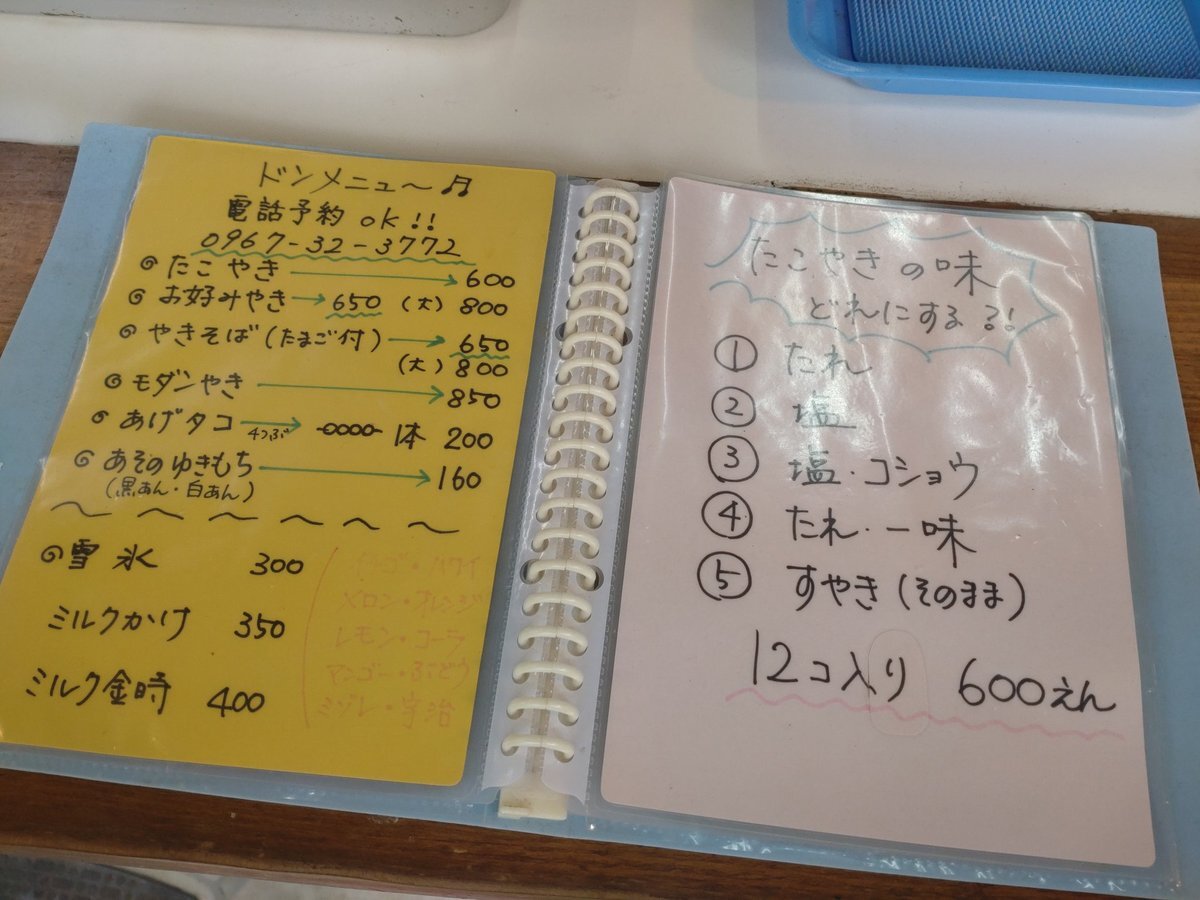 ドンメニュ〜♬
電話予約 ok!!
0967-32-3772
たこやき → 600
お好みやき → 650 (大) 800
やきそば(たまご付) → 650
(大) 800
モダンやき → 850
あげタコ 4つぶ → 1本 200
あそのゆきもち → 160
(黒あん・白あん)
雪氷 300
ミルクかけ 350
ミルク金時 400
イチゴ・ハワイ
メロン・オレンジ
レモン・コーラ
マンゴー・ぶどう
ミゾレ・宇治
たこやきの味
どれにする?!
① たれ
② 塩
③ 塩・コショウ
④ たれ・一味
⑤ すやき(そのまま)
12コ入り 600えん